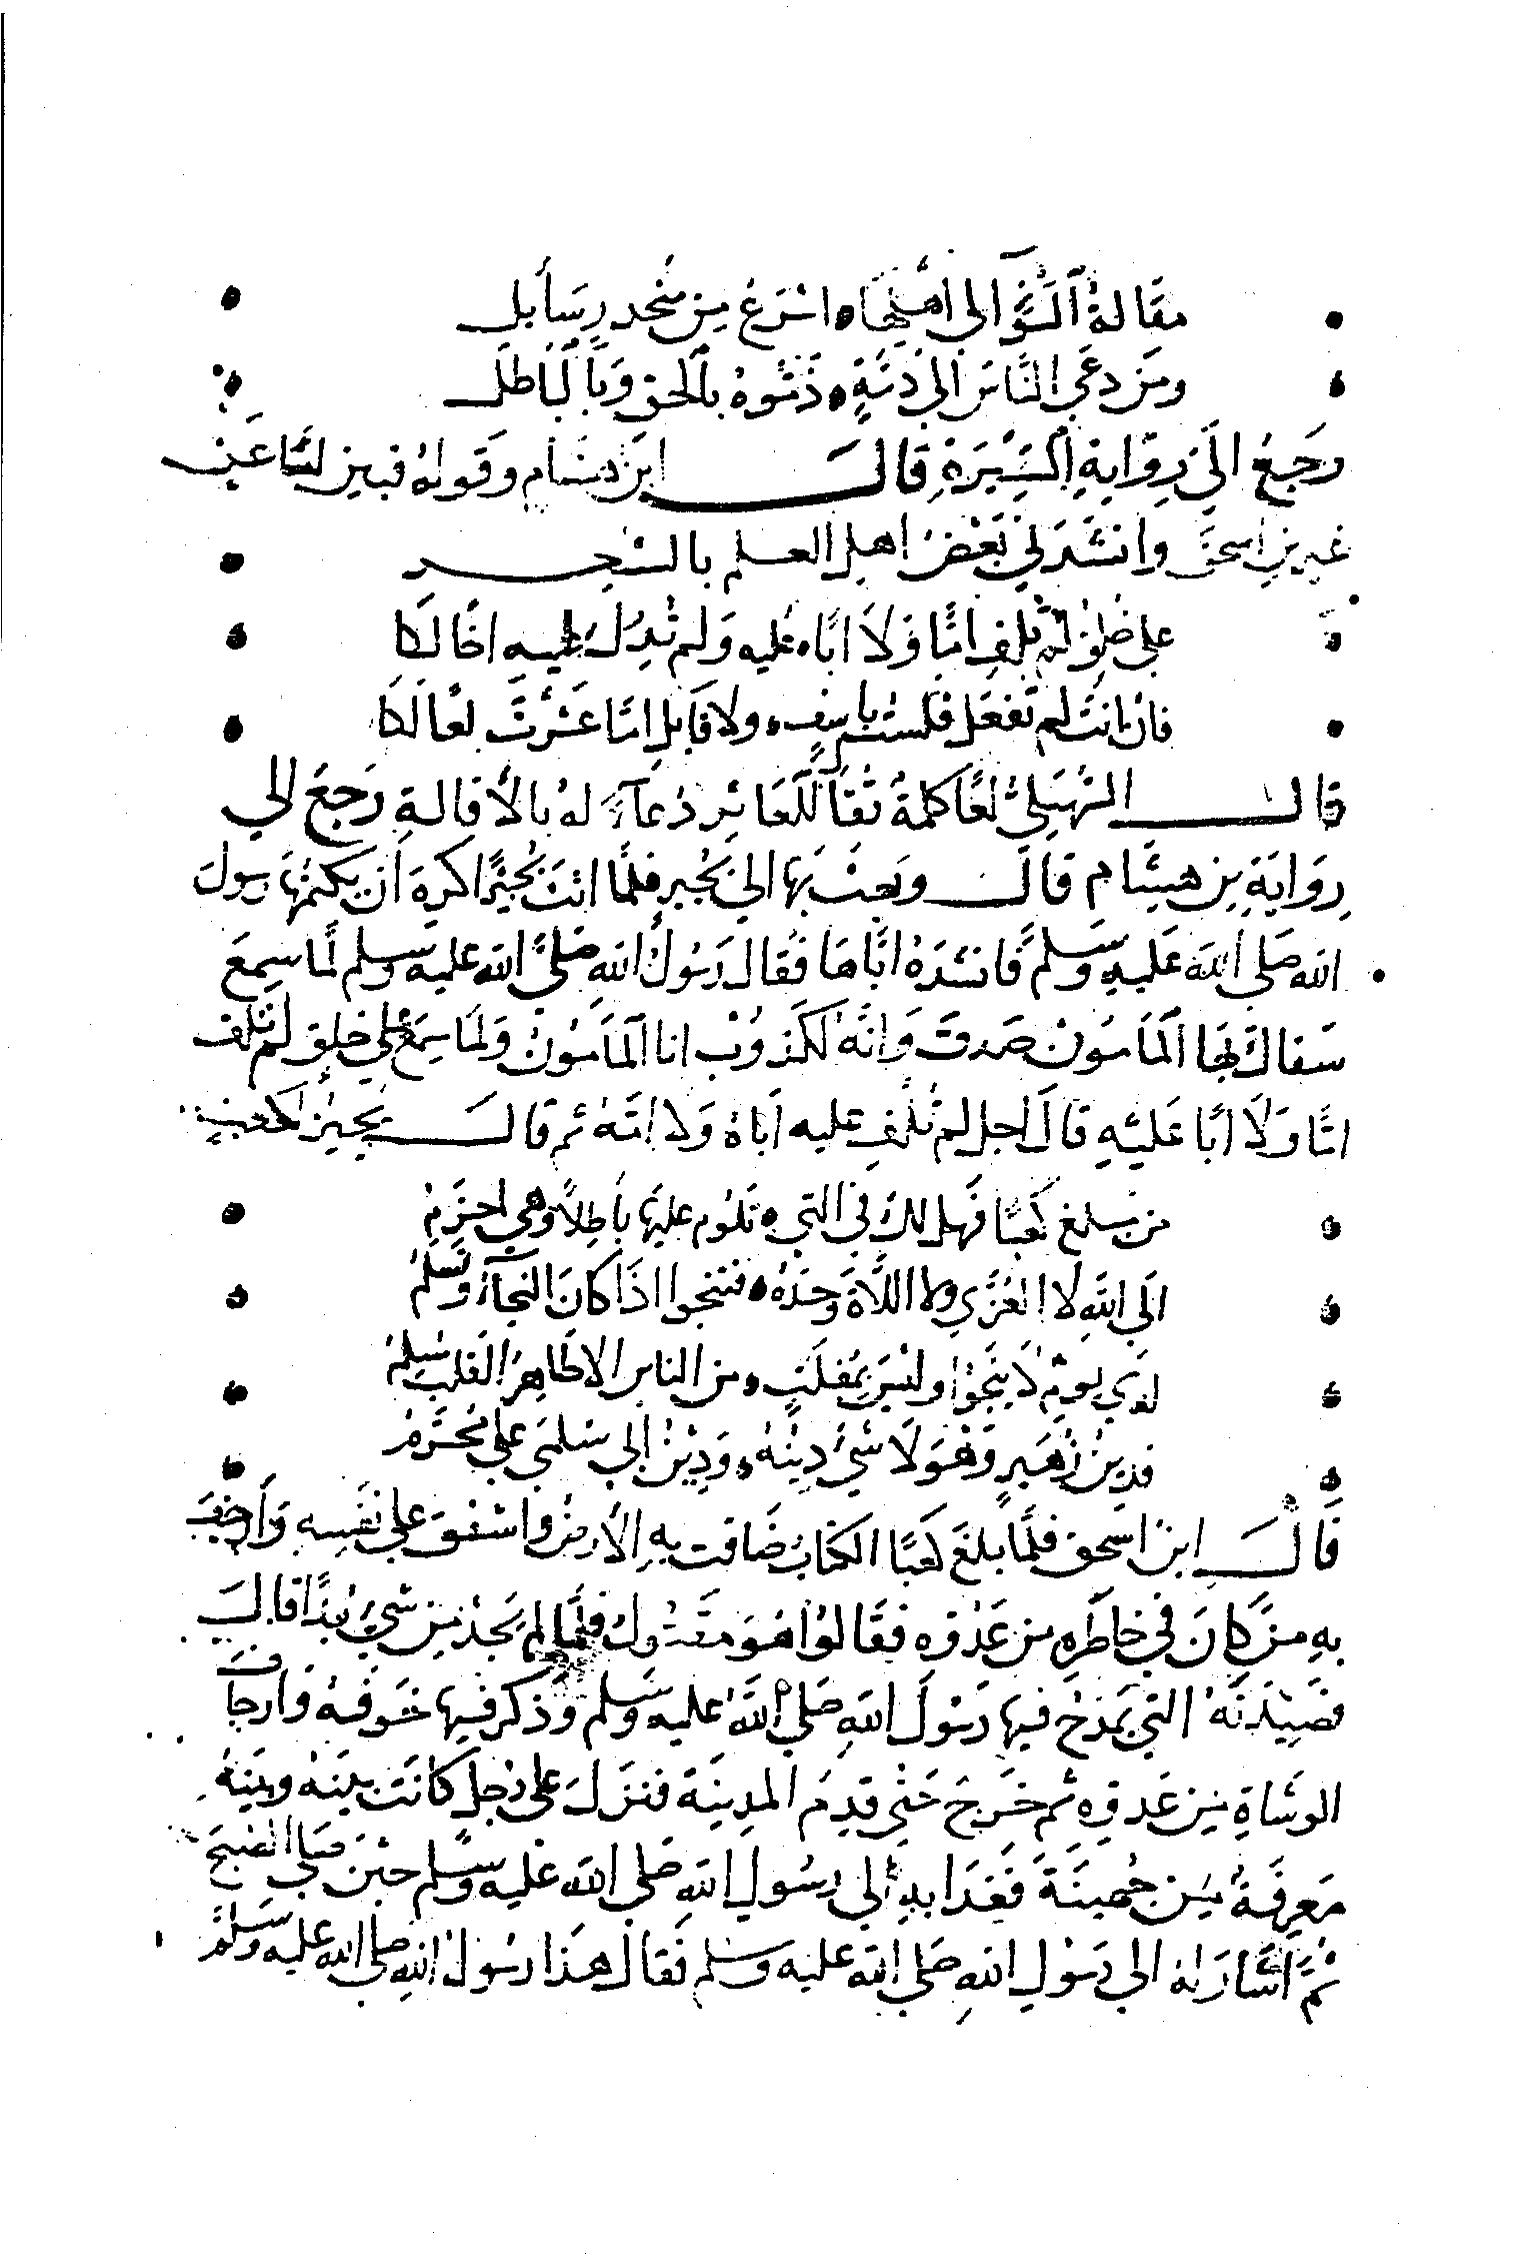 مقالة السوء الى اهلها ۰ اسرع من منحدر سايل
ومن دعى الناس الى ذمة ۰ ذموه بالحق وبالباطل
رجع الى رواية السيرة قال ابن هشام وقوله فبين لنا عن
غير بن اسحق وانشدني بعض اهل العلم بالشعر
على خلق لم تلف اما ولا ابا ۰ عليه ولم تدرك عليه اخا لكا
فان انت لم تفعل فلست باسف ۰ ولا قايل اما عثرت لعا لكا
قال السهيلي لعا كلمة تقال للعاثر دعآء له بالاقالة رجع الى
رواية بن هشام قال وبعث بها الى بجير فلما اتت بجيرا كره ان يكتمها رسول
الله صلى الله عليه وسلم فانشده اياها فقال رسول الله صلى الله عليه وسلم لما سمع
سقاك بها المامون صدق وانه لكذوب انا المامون ولما سمع على خلق لم تلف
اما ولا ابا عليه قال اجل لم تلف عليه اباه ولا امه ثم قال بجير لكعب
من مبلغ كعبا فهل لك في التي ۰ تلوم عليها باطلا وهي احزم
الى الله لا العزى ولا اللاة وحده ۰ فتنجوا اذا كان النجآء وتسلم
لدي يوم لا ينجوا وليس بمفلت ۰ من الناس الا طاهر القلب مسلم
فدين زهير وهو لا شي دينه ۰ ودين ابي سلمى على محرم
قال ابن اسحق فلما بلغ كعبا الكتاب ضاقت به الارض واشفق على نفسه وارجف
به من كان في خاطره من عدوه فقالوا هو مقتول فلما لم يجد من شي بدا قال
قصيدته التي يمدح فيها رسول الله صلى الله عليه وسلم وذكر فيها خوفه وارجاف
الوشاة من عدوه ثم خرج حتى قدم المدينة فنزل على رجل كانت بينه وبينه
معرفة من جهينة فغدا به الى رسول الله صلى الله عليه وسلم حين صلى الصبح
ثم اشار له الى رسول الله صلى الله عليه وسلم فقال هذا رسول الله صلى الله عليه وسلم